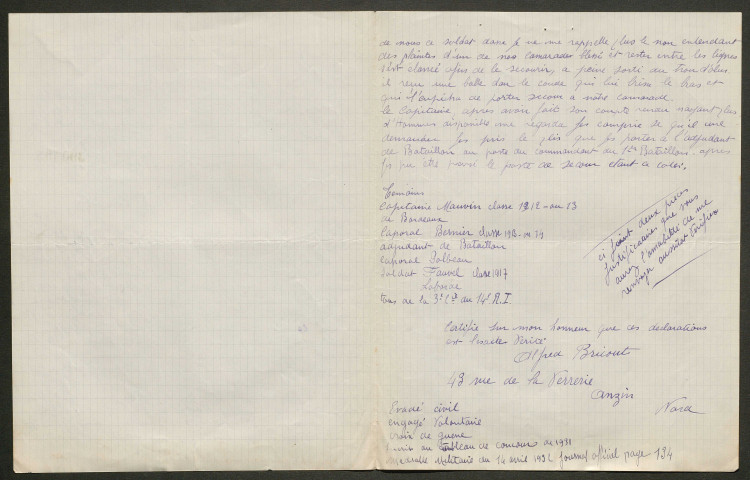 de nous ce soldat dons je ne me rappelle plus le non entendant
des plaintes d'un de nos camarades blessé et rester entre les lignes
s'est élancé afin de le secourir, a peine sorti du trou d'obus
il reçu une balle dan le coude qui lui brisa le bras et
qui l'empêcha de porter secour a notre camarade.
le Capitaine après avoir fait son compte rendu n'ayant plus
d'Hommes disponible me regarda je compris ce qu'il me
demandai je pris le plis que je portai à l'adjudant
de Bataillon au poste du commandant du 1er Bataillon. après
je pus être pansé le poste de secour étant a coter.
Témoins
Capitaine Mauvin classe 1912 ou 13
de Bordeaux
Caporal Bernier classe 1913 ou 14
adjudant de Bataillon
Caporal Solbeau
Soldat classe 1917
Laborde
tous de la 3e Cie du 14e R.I.
ci joint deux pièces
justificatives que vous
aurez l'amabilité de me
renvoyer aussitôt vérifiée
Certifie sur mon honneur que ces declarations
est l'exactes Vérité
Alfred Bricout
43 rue de la Verrerie
Anzin
Nord
Evadé civil
engagé Volontaire
croix de guerre
au tableau de concours de 1931
Médaille Militaire du 14 avril 1932 Journal officiel page 134